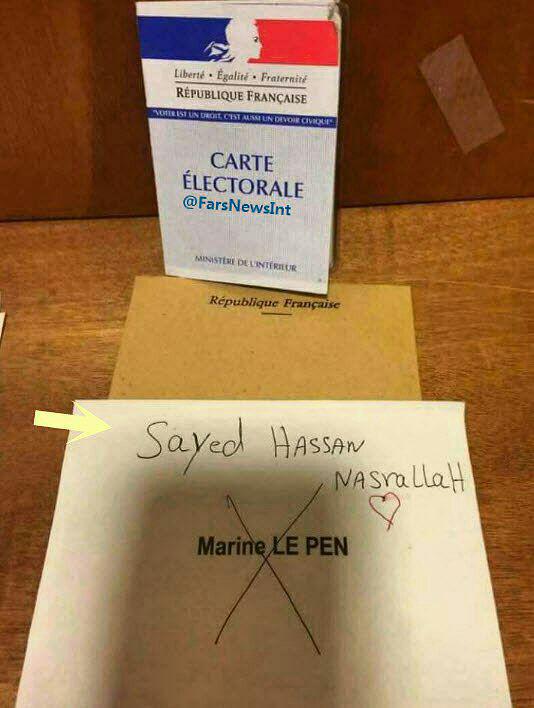 Liberté • Égalité • Fraternité
RÉPUBLIQUE FRANÇAISE
"VOTER EST UN DROIT, C'EST AUSSI UN DEVOIR CIVIQUE"
CARTE
ÉLECTORALE
@FarsNewsInt
MINISTÈRE DE L'INTÉRIEUR
République Française
Sayed HASSAN
NASrallaH
Marine LE PEN